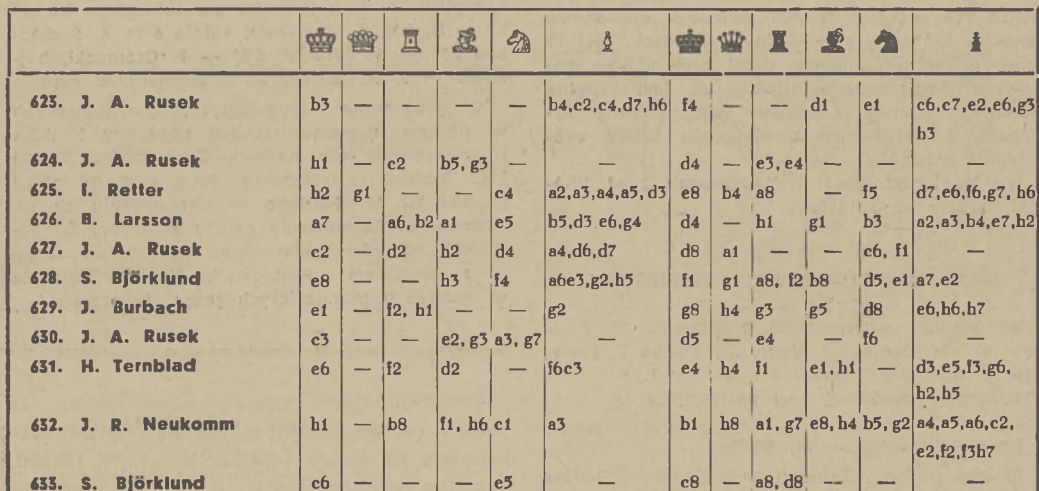 623. J. A. Rusek b3 — — — — b4,c2,c4,d7,h6 f4 — — d1 e1 c6,c7,e2,e6,g3
h3
624. J. A. Rusek h1 — c2 b5, g3 — — d4 — e3, e4 — — —
625. I. Retter h2 g1 — — c4 a2,a3,a4,a5, d3 e8 b4 a8 — f5 d7,e6,f6,g7, h6
626. B. Larsson a7 — a6, b2 a1 e5 b5,d3 e6,g4 d4 — h1 g1 b3 a2,a3,b4,e7,h2
627. J. A. Rusek c2 — d2 h2 d4 a4,d6,d7 d8 a1 — — c6, f1 —
628. S. Björklund e8 — — h3 f4 a6e3,g2,h5 f1 g1 a8, f2 b8 d5, e1 a7,e2
629. J. Burbach e1 — f2, h1 — — g2 g8 h4 g3 g5 d8 e6,h6,h7
630. J. A. Rusek c3 — — e2, g3 a3, g7 — d5 — e4 — f6 —
631. H. Ternblad e6 — f2 d2 — f6c3 e4 h4 f1 e1,h1 — d3,e5,f3,g6,
h2,b5
632. J. R. Neukomm h1 — b8 f1, h6 c1 a3 b1 h8 a1, g7 e8, h4 b5, g2 a4,a5,a6,c2,
e2,f2,f3h7
633. S. Björklund c6 — — — e5 — c8 — a8, d8 — — —